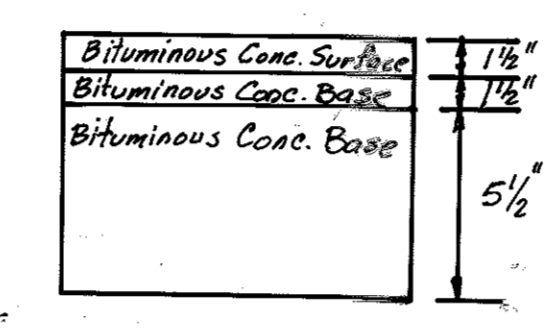 Bituminous Conc. Surface
1½"
Bituminous Conc. Base
1½"
Bituminous Conc. Base
5½"